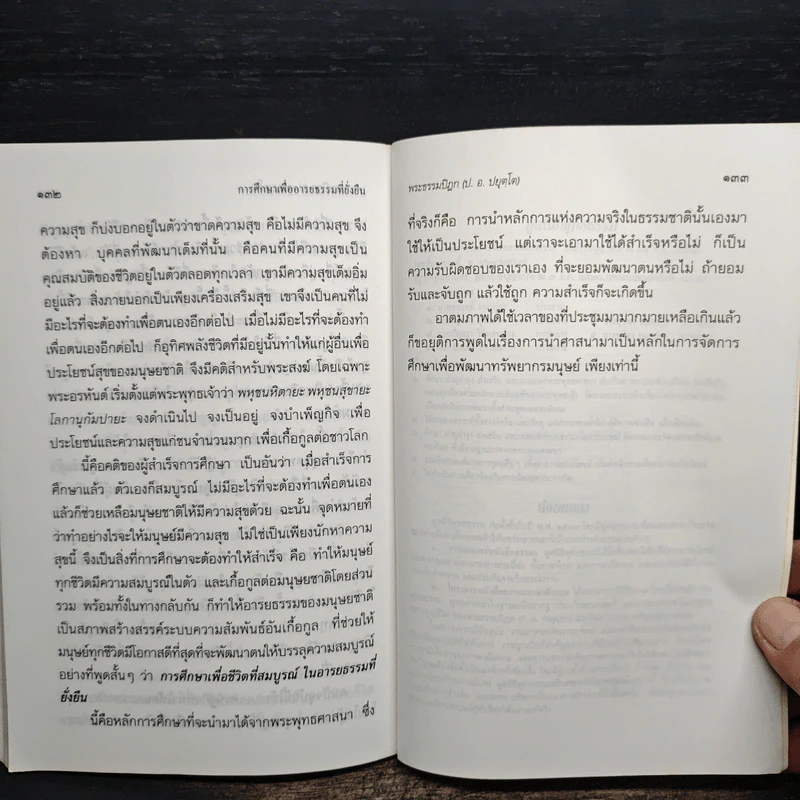 ๑๓๒
การศึกษาเพื่ออารยธรรมที่ยั่งยืน
ความสุข ก็บ่งบอกอยู่ในตัวว่าขาดความสุข คือไม่มีความสุข จึง
ต้องหา บุคคลที่พัฒนาเต็มที่นั้น คือคนที่มีความสุขเป็น
คุณสมบัติของชีวิตอยู่ในตัวตลอดทุกเวลา เขามีความสุขเต็มอิ่ม
อยู่แล้ว สิ่งภายนอกเป็นเพียงเครื่องเสริมสุข เขาจึงเป็นคนที่ไม่
มีอะไรที่จะต้องทำเพื่อตนเองอีกต่อไป เมื่อไม่มีอะไรที่จะต้องทำ
เพื่อตนเองอีกต่อไป ก็อุทิศพลังชีวิตที่มีอยู่นั้นทำให้แก่ผู้อื่นเพื่อ
ประโยชน์สุขของมนุษยชาติ จึงมีคติสำหรับพระสงฆ์ โดยเฉพาะ
พระอรหันต์ เริ่มตั้งแต่พระพุทธเจ้าว่า พหุชนหิตายะ พหุชนสุขายะ
โลกานุกัมปายะ จงดำเนินไป จงเป็นอยู่ จงบำเพ็ญกิจ เพื่อ
ประโยชน์และความสุขแก่ชนจำนวนมาก เพื่อเกื้อกูลต่อชาวโลก
นี้คือคติของผู้สำเร็จการศึกษา เป็นอันว่า เมื่อสำเร็จการ
ศึกษาแล้ว ตัวเองก็สมบูรณ์ ไม่มีอะไรที่จะต้องทำเพื่อตนเอง
แล้วก็ช่วยเหลือมนุษยชาติให้มีความสุขด้วย ฉะนั้น จุดหมายที่
ว่าทำอย่างไรจะให้มนุษย์มีความสุข ไม่ใช่เป็นเพียงนักหาความ
สุขนี้ จึงเป็นสิ่งที่การศึกษาจะต้องทำให้สำเร็จ คือ ทำให้มนุษย์
ทุกชีวิตมีความสมบูรณ์ในตัว และเกื้อกูลต่อมนุษยชาติโดยส่วน
รวม พร้อมทั้งในทางกลับกัน ก็ทำให้อารยธรรมของมนุษยชาติ
เป็นสภาพสร้างสรรค์ระบบความสัมพันธ์อันเกื้อกูล ที่ช่วยให้
มนุษย์ทุกชีวิตมีโอกาสดีที่สุดที่จะพัฒนาตนให้บรรลุความสมบูรณ์
อย่างที่พูดสั้นๆ ว่า การศึกษาเพื่อชีวิตที่สมบูรณ์ ในอารยธรรมที่
ยั่งยืน
นี้คือหลักการศึกษาที่จะนำมาได้จากพระพุทธศาสนา ซึ่ง
พระธรรมปิฎก (ป. อ. ปยุตฺโต)
๑๓๓
ที่จริงก็คือ การนำหลักการแห่งความจริงในธรรมชาตินั้นเองมา
ใช้ให้เป็นประโยชน์ แต่เราจะเอามาใช้ได้สำเร็จหรือไม่ ก็เป็น
ความรับผิดชอบของเราเอง ที่จะยอมพัฒนาตนหรือไม่ ถ้ายอม
รับและจับถูก แล้วใช้ถูก ความสำเร็จก็จะเกิดขึ้น
อาตมภาพได้ใช้เวลาของที่ประชุมมามากมายเหลือเกินแล้ว
ก็ขอยุติการพูดในเรื่องการนำศาสนามาเป็นหลักในการจัดการ
ศึกษาเพื่อพัฒนาทรัพยากรมนุษย์ เพียงเท่านี้